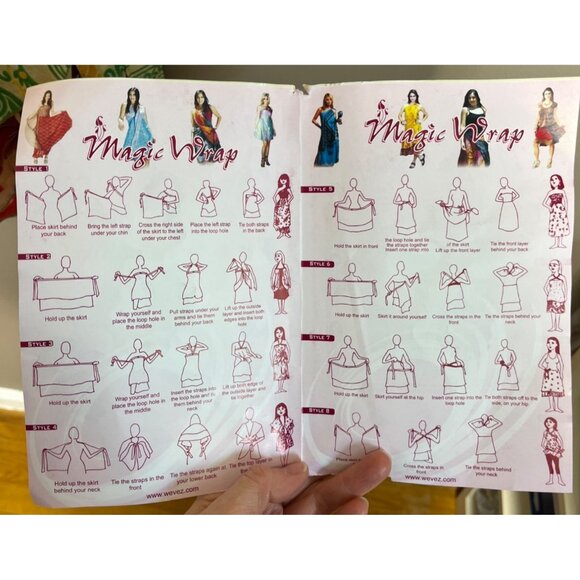 Magic Wrap
STYLE 1
Place skirt behind
your back
Bring the left strap
under your chin
Cross the right side
of the skirt to the left
under your chest
Place the left strap
into the loop hole
Tie both straps
in the back
STYLE 2
Hold up the skirt
Wrap yourself and
place the loop hole in
the middle
Pull straps under your
arms and tie them
behind your back
Lift up the outside
layer and insert both
edges into the loop
hole
STYLE 3
Hold up the skirt
Wrap yourself and
place the loop hole in
the middle
Insert the straps into
the loop hole and tie
them behind your
neck
Lift up both edge of
the outside layer and
tie together
STYLE 4
Hold up the skirt
behind your neck
Tie the straps in the
front
Tie the straps again at
your lower back
Tie the top layer in
www.wevez.com
Magic Wrap
STYLE 5
Hold the skirt in front
the loop hole and tie
the straps together
insert one strap into
of the skirt
Lift up the front layer
Tie the front layer
behind your neck
STYLE 6
Hold up the skirt
Skirt it around yourself
Cross the straps in the
front
Tie the straps behind your
neck
STYLE 7
Hold up the skirt
Skirt yourself at the hip
Insert one strap into the
loop hole
Tie both straps off to the
side, on your hip.
STYLE 8
Place
Cross the straps in
front
Tie the straps behind
your neck
www.wevez.com